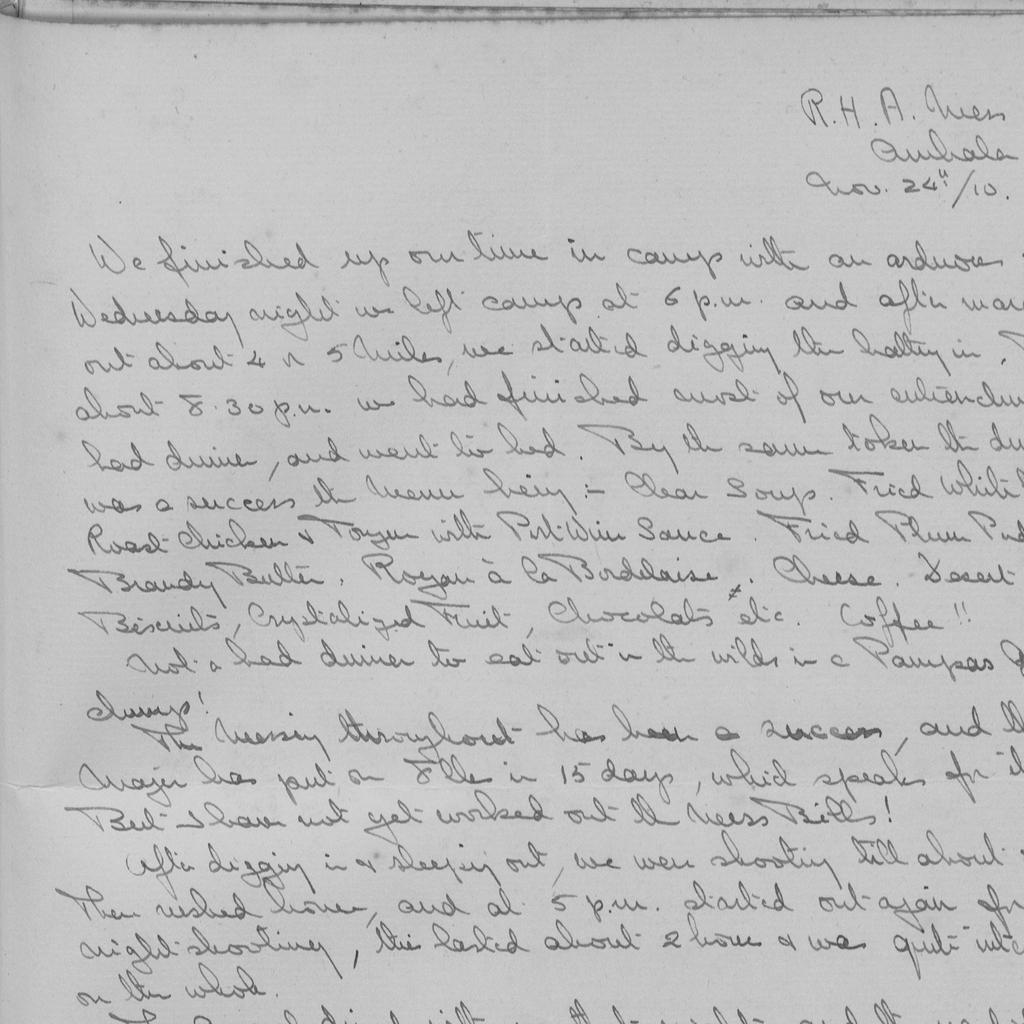 R.H.A. Mess
Ambala
Nov. 24th/10.
We finished up our time in camp with an arduous
Wednesday night we left camp at 6 p.m. and after
out about 4 or 5 Miles, we started digging the battery in.
about 8.30 p.m. we had finished most of our
had dinner, and went to bed. By the same token the
was a success the Menu being :- Clear Soup. Fried
Roast Chicken & Tongue with Port Wine Sauce. Fried Plum
Brandy Butter. Royan à la Bordelaise. Cheese. Desert
Biscuits, Crystalized Fruit, Chocolats etc. Coffee!!
Not a bad dinner to eat out in the wilds in a Pampas
clump!
The Messing throughout has been a success, and
Major has put on 8 lbs in 15 days, which speaks for
But I have not yet worked out the Mess Bills!
After digging in & sleeping out, we were shooting till about
then rushed home, and at 5 p.m. started out again for
night shooting, this lasted about 2 hours & was quite
on the whole.